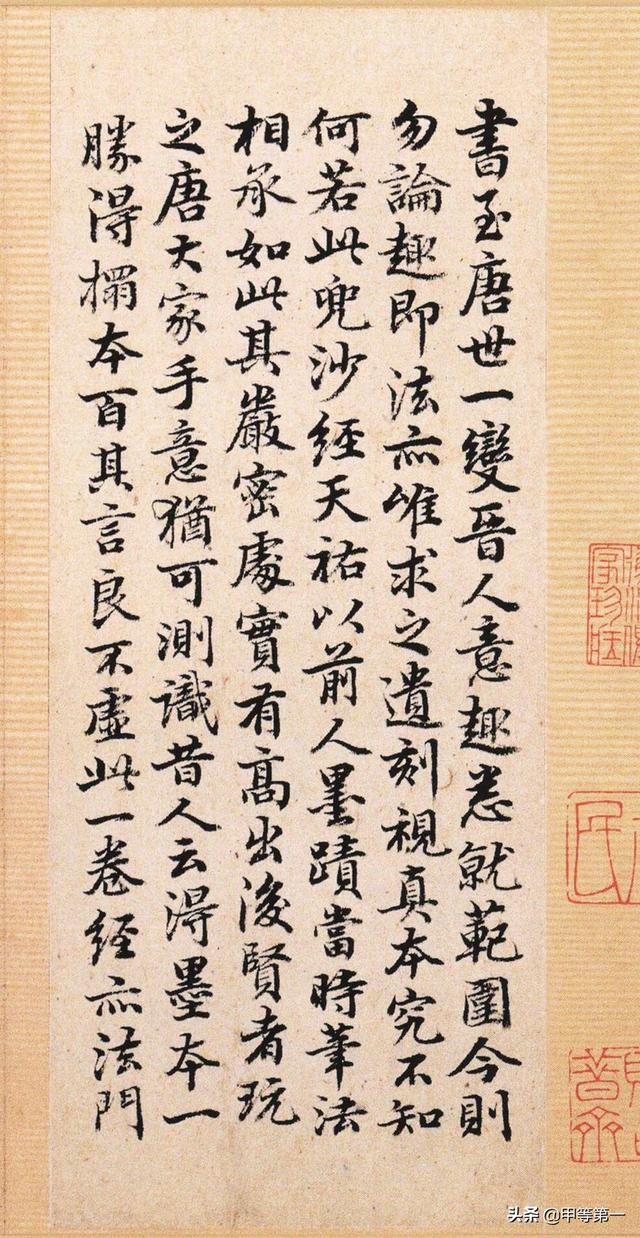 書至唐世一變晉人意趣悉就範圍今則
勿論趣即法亦唯求之遺刻視真本究不知
何若此兜沙經天祐以前人墨蹟當時筆法
相承如此其嚴密處實有高出後賢者玩
之唐大家手意猶可測識昔人云得墨本一
勝得搨本百其言良不虛此一卷經亦法門
头条 @甲等第一